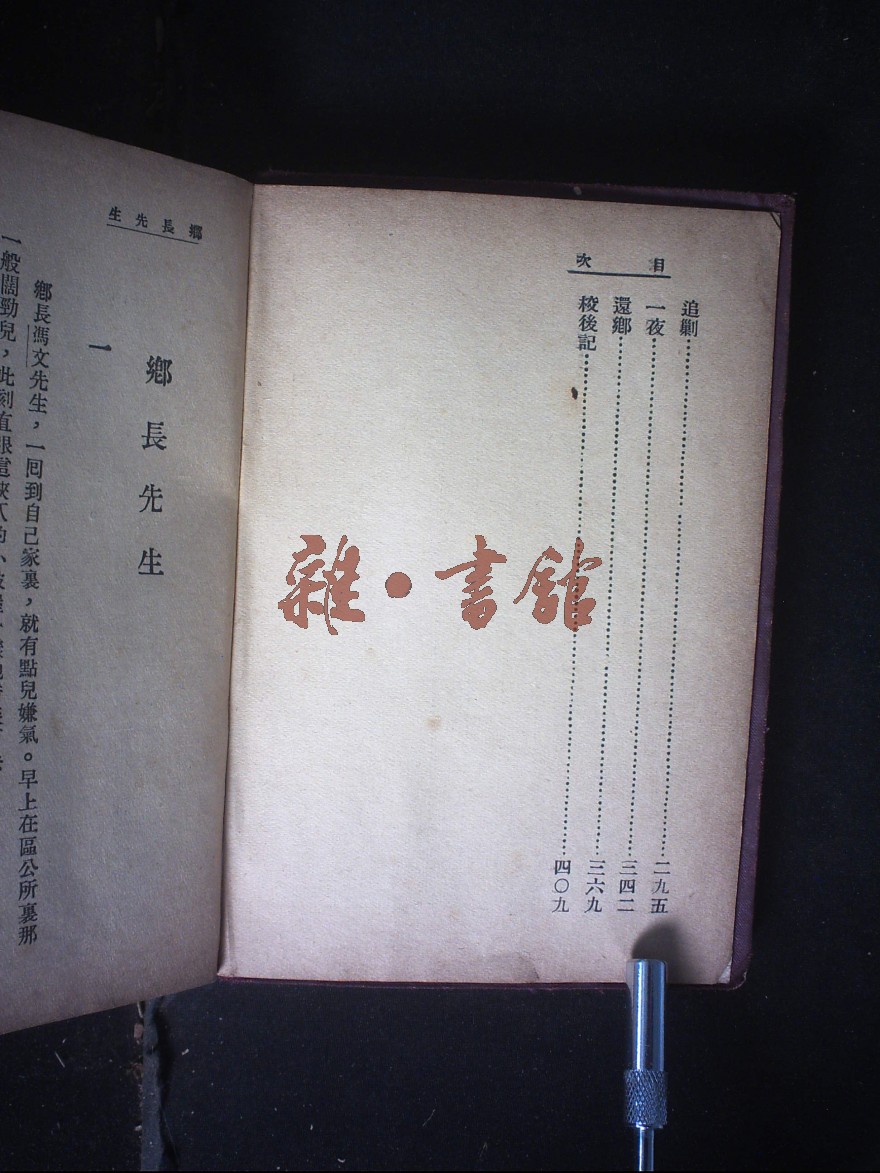 目次
追剿 二九五
一夜 三四二
還鄉 三六九
校後記 四〇九
雜・書館
鄉長先生
鄉長先生
一
鄉長馮文先生,一囘到自己家裏,就有點兒嫌氣。早上在區公所裏那
一般闊勁兒,此刻直